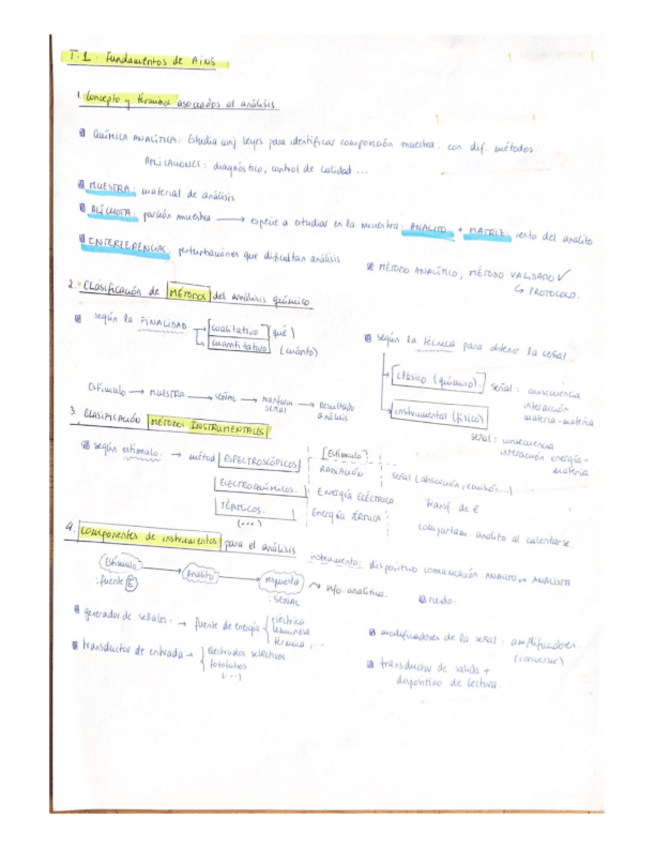 T.1. Fundamentos de AINS
1. Concepto y términos asociados al análisis
QUÍMICA ANALÍTICA: Estudia conj leyes para identificar composición muestra con dif. métodos.
APLICACIONES: diagnóstico, control de calidad ...
MUESTRA: material de análisis
ALÍCUOTA: porción muestra → especie a estudiar en la muestra: ANALITO + MATRIZ: resto del analito
INTERFERENCIAS: perturbaciones que dificultan análisis
MÉTODO ANALÍTICO; MÉTODO VALIDADO ✓
↳ PROTOCOLO.
2. Clasificación de MÉTODOS del análisis químico
según la FINALIDAD → cualitativo (qué)
↳ cuantitativo (cuánto)
según la técnica para obtener la señal
→ clásico (químico). señal: consecuencia
interacción
materia-materia
→ instrumental (físico)
señal: consecuencia
interacción energía-
materia
Estímulo → MUESTRA → señal → transform señal → Resultado análisis
3. CLASIFICACIÓN MÉTODOS INSTRUMENTALES
según estímulo. → métod ESPECTROSCÓPICOS [Estímulo]
RADIACIÓN señal (absorción, emisión...)
ELECTROQUÍMICOS. ENERGÍA ELÉCTRICA transf. de é
TÉRMICOS. Energía TÉRMICA comportam. analito al calentarse.
(...)
4. Componentes de instrumentos para el análisis
instrumento: dispositivo comunicación ANALITO → ANALISTA
Estímulo → Analito → respuesta → info. analítica.
: fuente E : SEÑAL
ruido:
generador de señales. → fuente de energía { eléctrica
luminosa
térmica, ...
transductor de entrada → { electrodos selectivos
fototubos
(...)
modificadores de la señal: amplificadores.
(conversor)
transductor de salida +
dispositivo de lectura.